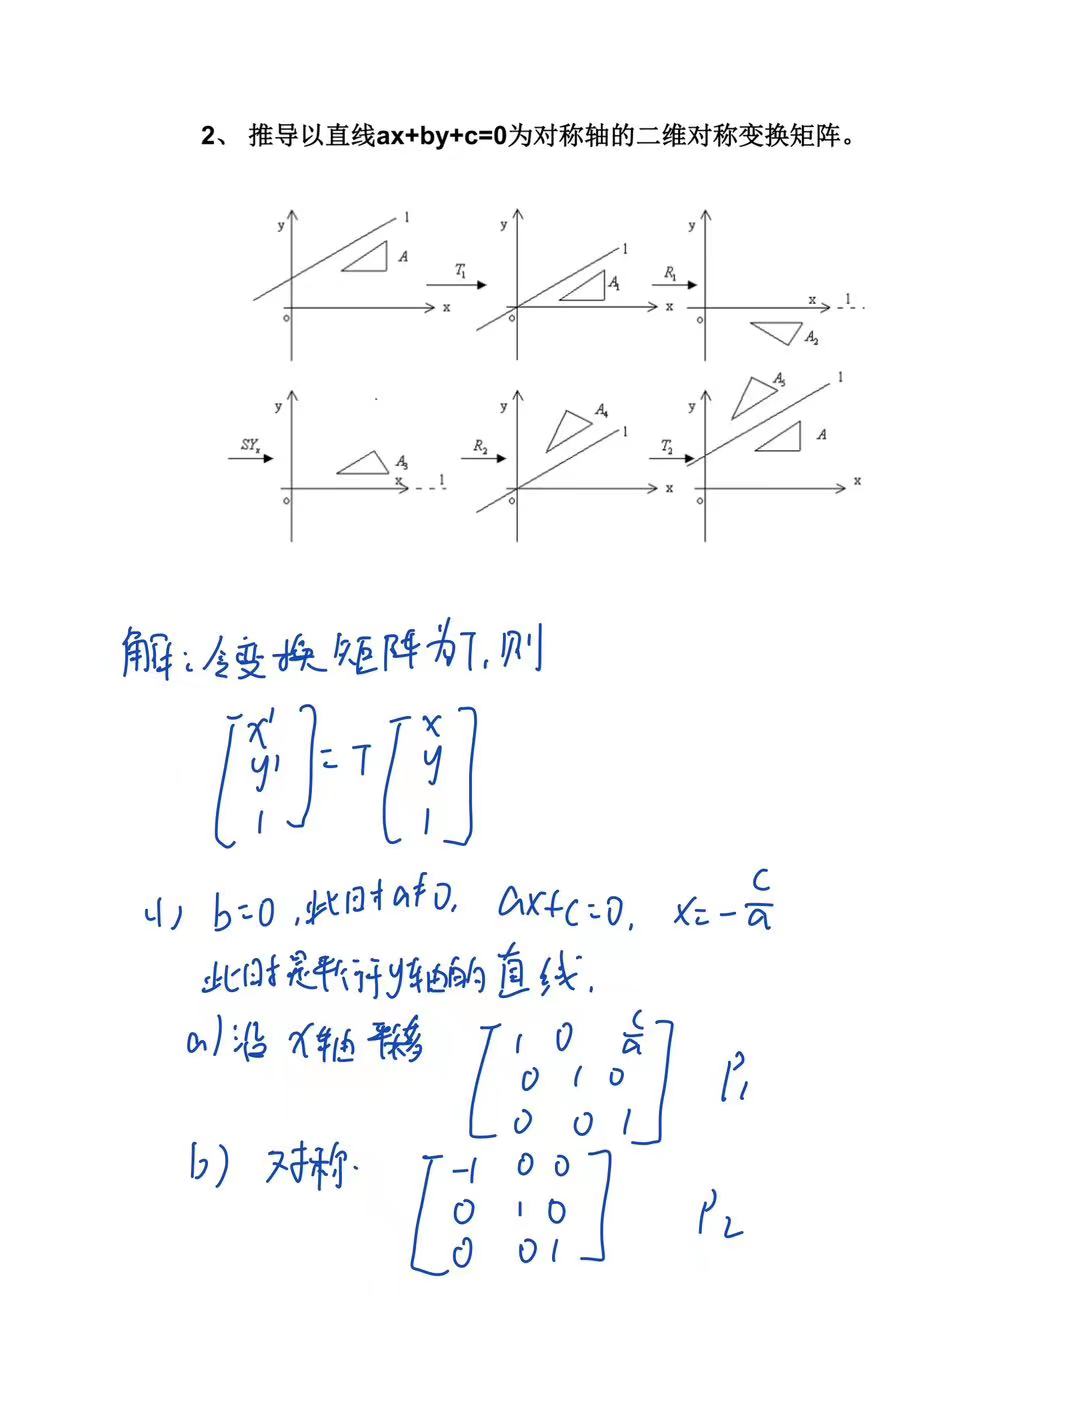 2、 推导以直线ax+by+c=0为对称轴的二维对称变换矩阵。
y l A x o
T₁
y l A₁ x o
R₁
y x l A₂ o
SYₓ
y A₃ x l o
R₂
y A₄ l x o
T₂
y A₅ l A x o
解:令变换矩阵为T,则
[x' y' 1] = T [x y 1]
(1) b=0,此时a≠0, ax+c=0, x=-c/a
此时是平行于y轴的直线.
a)沿x轴平移 [1 0 c/a
0 1 0
0 0 1] P₁
b) 对称. [-1 0 0
0 1 0
0 0 1] P₂